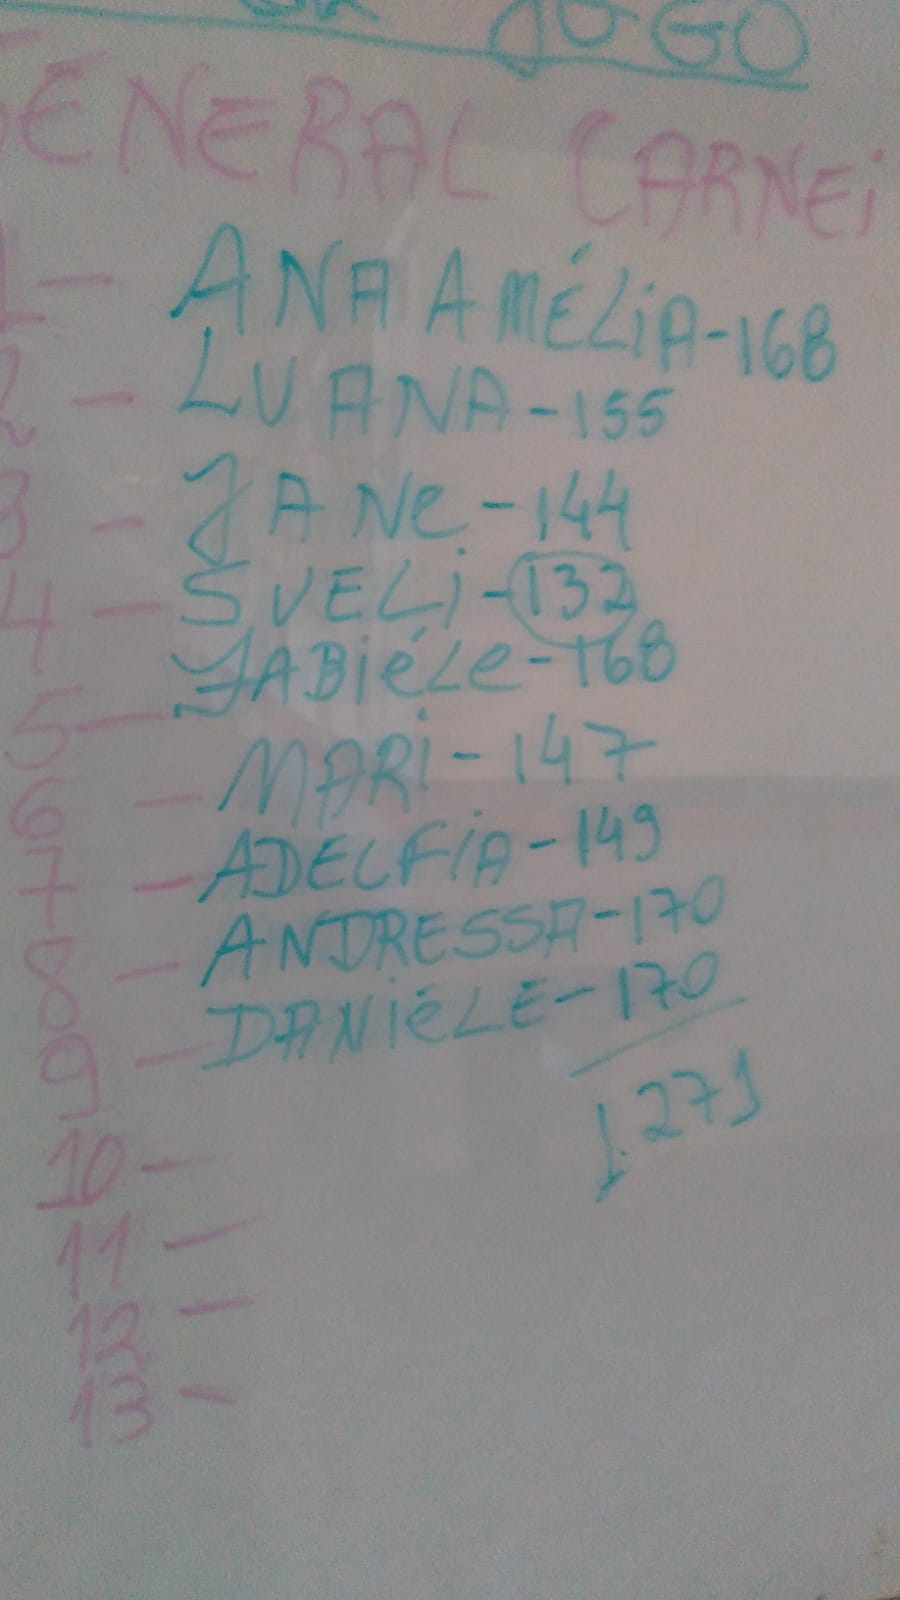 JOGO
GENERAL CARNEI
1- ANA AMÉLIA-168
2- LUANA-155
3- JANe-144
4- SUELi-132
5- JABiéLe-168
6- MARi-147
7- ADELFiA-149
8- ANDRESSA-170
9- DANiéLE-170
1.271
10-
11-
12-
13-